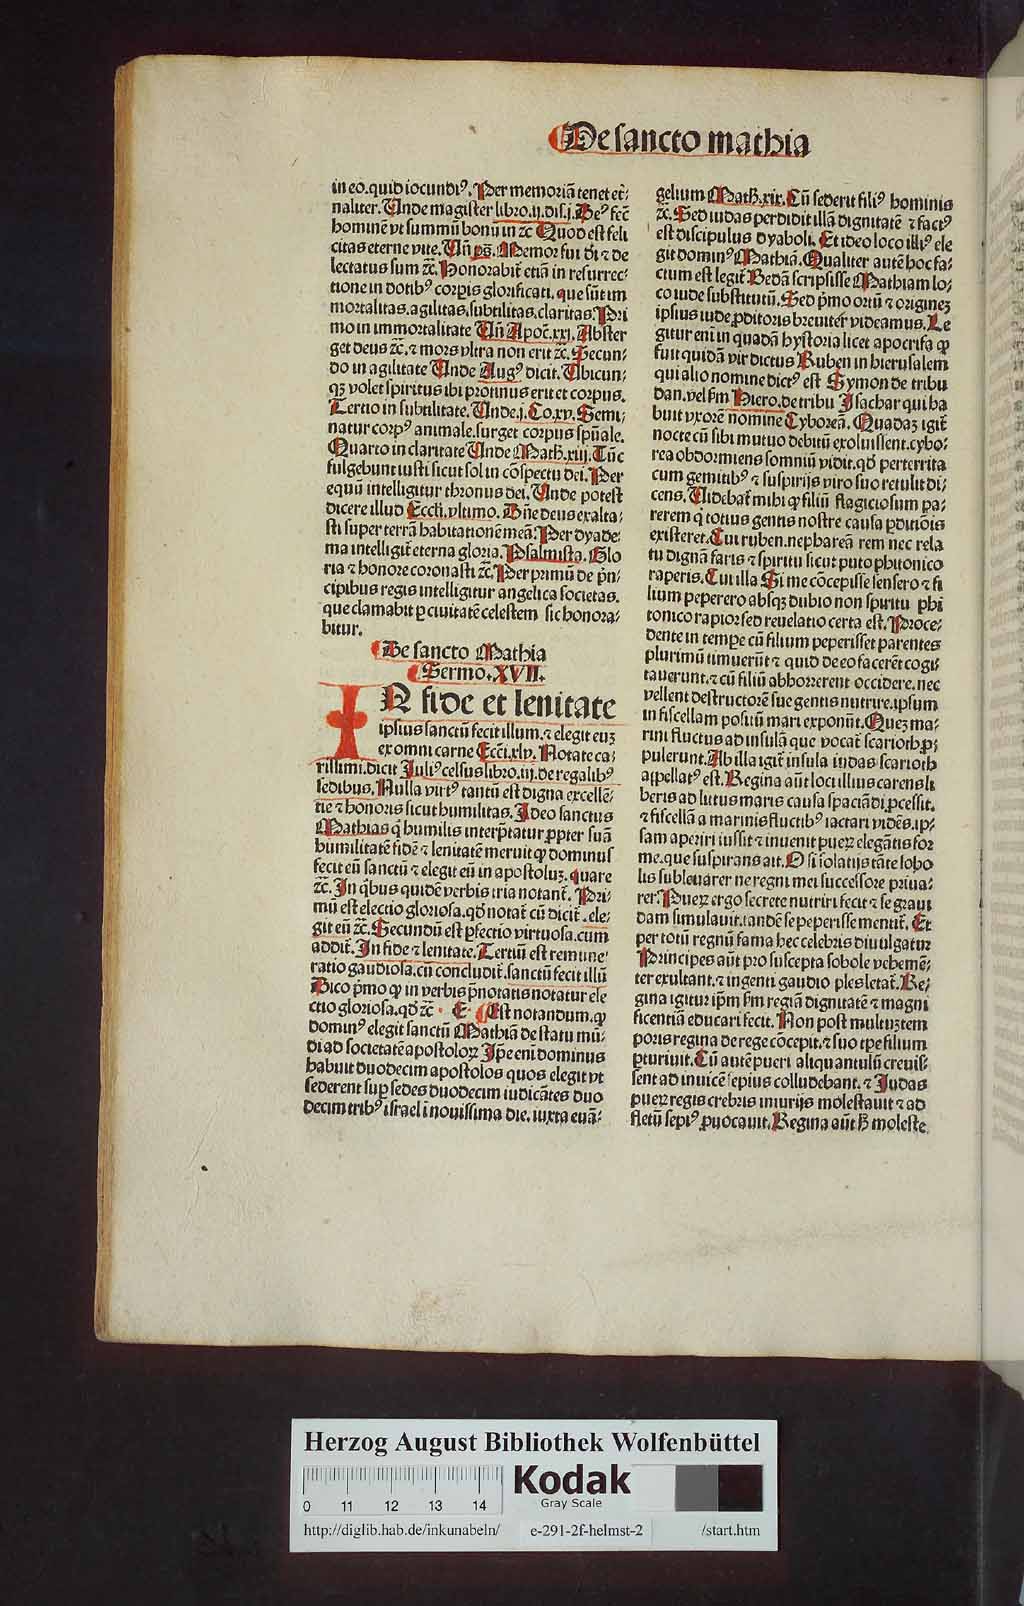 De sancto mathia
in eo. quid iocundiꝰ. Per memoriā tenet et̄⸗
naliter. Unde magister libro .ij. dis. j. Deꝰ fec̄
hominē vt summū bonū in ⁊c̄ Quod est feli
citas eterne vite. Uñ ps̄. Memor fui dī ⁊ de
lectatus sum ⁊c̄. Honorabit̄ etiā in resurrec⸗
tione in dotibꝰ corpis glorificati. que sūt im
mortalitas. agilitas. subtilitas. claritas. Pri
mo in immortalitate Uñ Apoc̄. xxi. Abster
get deus ⁊c̄. ⁊ mors vltra non erit ⁊c̄. Secun⸗
do in agilitate Unde Augꝰ dicit. Ubicun⸗
qꝫ volet spiritus ibi protinus erit et corpus.
Tertio in subtilitate. Unde. j. Co. xv. Semi⸗
natur corpꝰ animale. surget corpus spūale.
Quarto in claritate Unde Math̄. xiij. Tūc
fulgebunt iusti sicut sol in cōspectu dei. Per
equū intelligitur thronus dei. Unde potest
dicere illud Eccli. vltimo. Dn̄e deus exalta⸗
sti super terrā habitationē meā. Per dyade⸗
ma intelligit̄ eterna gloria. Psalmista. Glo
ria ⁊ honore coronasti ⁊c̄. Per primū de p̄n⸗
cipibus regis intelligitur angelica societas.
que clamabit ꝑ ciuitatē celestem sic honora⸗
bitur.
De sancto Mathia
Sermo. XVII.
IN fide et lenitate
ipsius sanctū fecit illum. ⁊ elegit euꝫ
ex omni carne Ecc̄i. xlv. Notate ca⸗
rissimi. dicit Juliꝰ celsus libro. iij. de regalibꝰ
sedibus. Nulla virtꝰ tantū est digna excellē⸗
tie ⁊ honoris sicut humilitas. Ideo sanctus
Mathias q̄ humilis interp̄tatur ꝓpter suā
humilitatē fidē ⁊ lenitatē meruit ꝙ dominus
fecit eū sanctū ⁊ elegit eū in apostoluꝫ. quare
⁊c̄. In q̄bus quidē verbis tria notant̄. Pri⸗
mū est electio gloriosa. qd̄ notat̄ cū dicit̄. ele⸗
git eū ⁊c̄. Secundū est ꝑfectio virtuosa. cum
addit̄. In fide ⁊ lenitate. Tertiū est remune⸗
ratio gaudiosa. cū concludit̄. sanctū fecit illū
Dico p̄mo ꝙ in verbis p̄notatis notatur ele
ctio gloriosa. qd̄ ⁊c̄ · E· Est notandum. ꝙ
dominꝰ elegit sanctū Mathiā de statu mū⸗
di ad societatē apostoloꝝ Ipe enī dominus
habuit duodecim apostolos quos elegit vt
sederent suꝑ sedes duodecim iudicātes duo
decim tribꝰ israel i nouissima die. iuxta euā⸗
gelium Math̄. xix. Cū sederit filiꝰ hominis
⁊c̄. Sed iudas perdidit illā dignitatē ⁊ factꝰ
est discipulus dyaboli. Et ideo loco illiꝰ ele
git dominꝰ Mathiā. Qualiter autē hoc fa⸗
ctum est legit̄ Bedā scripsisse Mathiam lo⸗
co iude substitutū. Sed p̄mo ortū ⁊ origineꝫ
ipsius iude ꝓditoris breuiter videamus. Le
gitur enī in quadā hystoria licet apocrifa ꝙ
fuit quidā vir dictus Ruben in hierusalem
qui alio nomine dictꝰ est Symon de tribu
dan. vel ẜm Hiero. de tribu Isachar qui ha
buit vxorē nomine Cyboreā. Quadaꝫ igit̄
nocte cū sibi mutuo debitū exoluissent. cybo⸗
rea obdormiens somniū vidit. qd̄ perterrita
cum gemitibꝰ ⁊ suspirijs viro suo retulit di⸗
cens. Uidebat̄ mihi ꝙ filiū flagiciosum pa⸗
rerem q̄ totius gentis nostre causa ꝑditiōis
existeret. Cui ruben. nephareā rem nec rela
tu dignā faris ⁊ spiritu sicut puto phitonico
raperis. Cui illa Si me cōcepisse sensero ⁊ fi
lium peperero absqꝫ dubio non spiritu phi
tonico rapior sed reuelatio certa est. Proce⸗
dente in tempe cū filium peperisset parentes
plurimū timuerūt ⁊ quid de eo facerēt cogi
tauerunt. ⁊ cū filiū abhorrerent occidere. nec
vellent destructorē sue gentis nutrire. ipsum
in fiscellam positū mari exponūt. Quez ma⸗
rini fluctus ad insulā que vocat̄ scarioth ꝓ⸗
pulerunt. Ab illa igit̄ insula iudas scarioth
appellatꝰ est. Regina aūt loci illius carens li
beris ad litus maris causa spaciādi ꝓcessit.
⁊ fiscellā a marinis fluctibꝰ iactari vidēs. ip⸗
sam aperiri iussit ⁊ inuenit pueꝝ elegātis for
me. que suspirans ait. O si solatijs tāte sobo
lis subleuarer ne regni mei successore priua⸗
rer. Pueꝝ ergo secrete nutriri fecit ⁊ se graui
dam simulauit. tandē se peperisse mentit̄. Et
per totū regnū fama hec celebris diuulgatur
Principes aūt pro suscepta sobole vehemē⸗
ter exultant. ⁊ ingenti gaudio ples letat̄. Re⸗
gina igitur ip̄m ẜm regiā dignitatē ⁊ magni
ficentiā educari fecit. Non post multuꝫ tem
poris regina de rege cōcepit. ⁊ suo tpe filium
ꝑturiuit. Cū autē pueri aliquantulū creuis⸗
sent ad inuicē sepius colludebant. ⁊ Judas
pueꝝ regis crebris iniurijs molestauit ⁊ ad
fletū sepiꝰ ꝓuocauit. Regina aūt h̄ moleste
Herzog August Bibliothek Wolfenbüttel
Kodak
Gray Scale
0 11 12 13 14
http://diglib.hab.de/inkunabeln/ e-291-2f-helmst-2 /start.htm